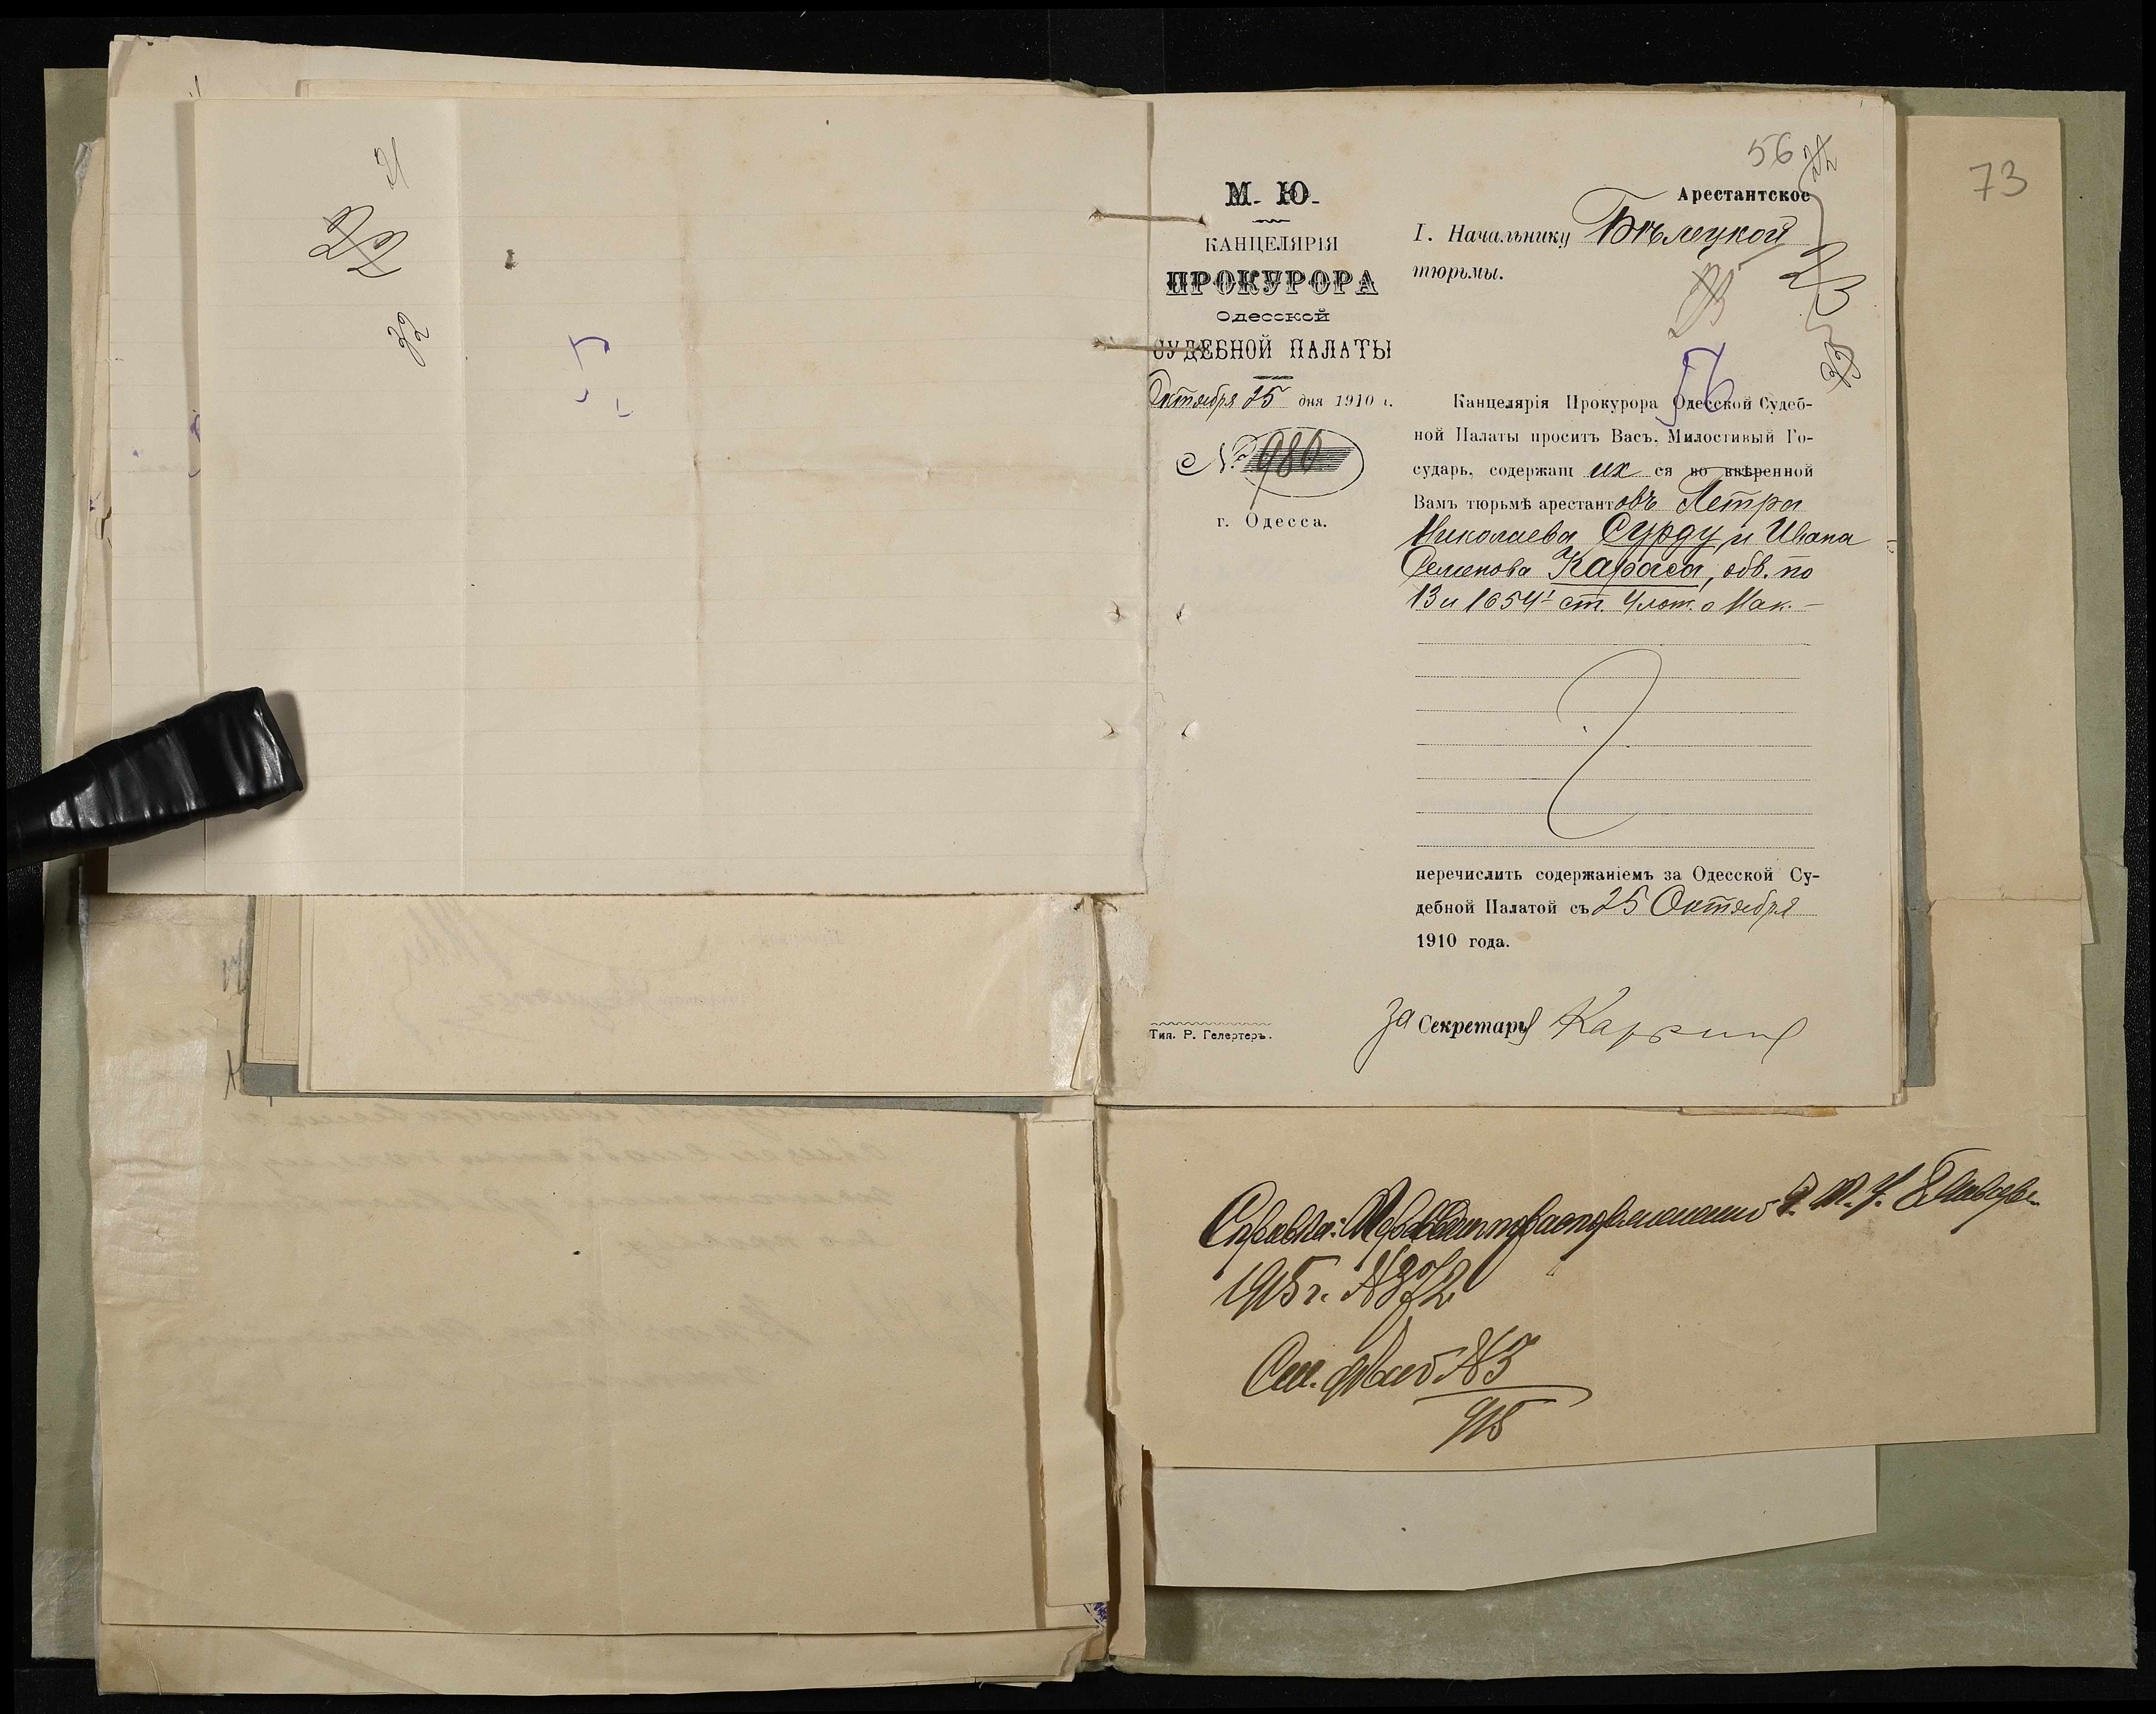 21
22
32
56
22
73
М. Ю.
КАНЦЕЛЯРІЯ
ПРОКУРОРА
Одесской
СУДЕБНОЙ ПАЛАТЫ
Октября 25 дня 1910 г.
№ 980
г. Одесса.
Арестантское
I. Начальнику Бѣлецкой
тюрьмы.
23
56
Канцелярія Прокурора Одесской Судеб-
ной Палаты проситъ Васъ, Милостивый Го-
сударь, содержащ ихся во ввѣренной
Вамъ тюрьмѣ арестантовъ Петра
Николаева Сурду и Ивана
Семенова Караса, обв. по
13 и 1654¹ ст. Улож. о Нак.
перечислить содержаніемъ за Одесской Су-
дебной Палатой съ 25 Октября
1910 года.
За Секретаря
Тип. Р. Гелертеръ.
Справка:
1915 г. №
См. № 3
915